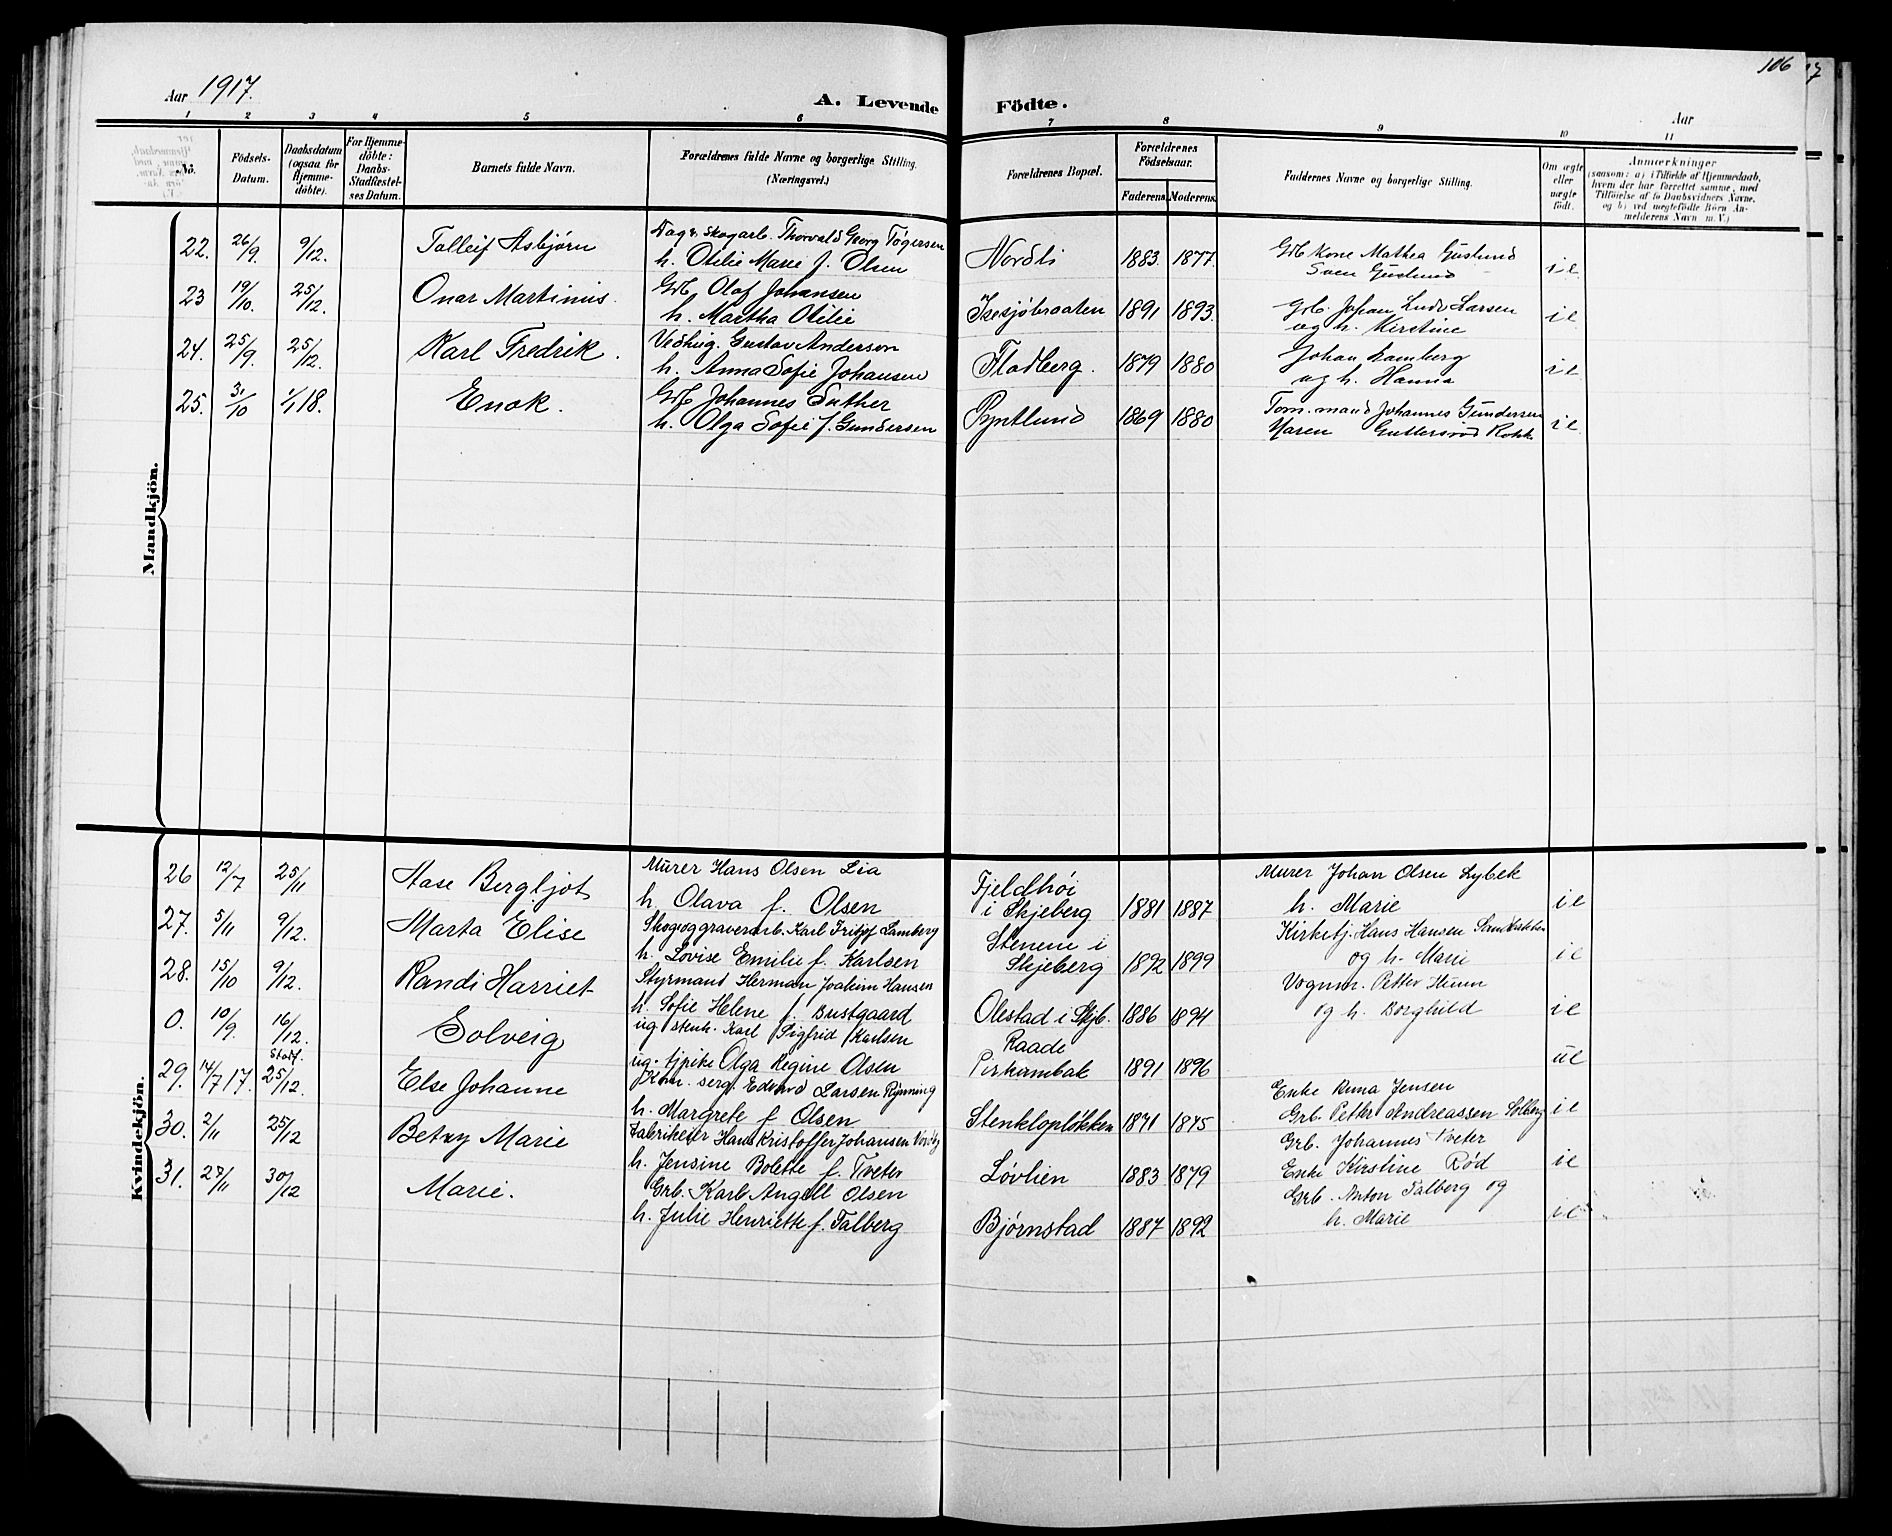 106
Aar 1917.
A. Levende Födte.
Aar
1 2 3 4 5 6 7 8 9 10 11
No.
Födsels-Datum.
Daabsdatum (ogsaa for Hjemme-döbte).
For Hjemme-döbte: Daabs-Stadfæstel-ses Datum.
Barnets fulde Navn.
Forældrenes fulde Navne og borgerlige Stilling. (Næringsvei.)
Forældrenes Bopæl.
Forældrenes Födselsaar.
Faderens. Moderens.
Faddernes Navne og borgerlige Stilling.
Om ægte eller uægte födt.
Anmærkninger
(saasom: a) i Tilfælde af Hjemmedaab, hvem der har forrettet samme, med Tilföielse af to Daabsvidners Navne, og b) ved uægtefödte Börn An-melderens Navn m. V.)
Mandkjön.
22. 26/9. 9/12. Tolleif Asbjørn Dag. skogarb. Thorvald Georg Tøgersen
h. Otilie Marie f. Olsen Nordli 1883. 1877. Grb kone Mathea Guslund
Sven Guslund i e
23 19/10. 25/12. Onar Martinius. Grb. Olof Johansen
h. Martha Otilie Isesjøbraaten 1891 1893. Grb. Johan Ludv Larsen
og h. Kirstine i e
24. 25/9. 25/12. Karl Fredrik. Vedhug. Gustav Anderson
h. Anna Sofie Johansen Fladberg. 1879 1880 Johan Lamberg
og h. Hanna i e
25. 31/10 1/1 18. Enok. Grb Johannes Sather
h. Olga Sofie f. Gundersen Pyntlund 1869 1880 Tom.mand Johannes Gundersen
Maren i e.
Kvindekjön.
26 12/7 25/11 Aase Bergljot Murer Hans Olsen Lia
h. Olava f. Olsen Fjeldhøi i Skjeberg 1881 1887 Murer Johan Olsen Lybek
h. Marie i e
27. 5/11 9/12. Marta Elise Skogoggraverarb. Karl Fritjof Lamberg
h. Lovise Emilie f. Karlsen Stenene i Skjeberg 1892 1899 Kirketj. Hans Hansen
og h. Marie i e
28. 15/10 9/12. Randi Harriet Styrmand Herman Joakim Hansen
h. Sofie Helene f. Bustgaard Olestad i Skjb. 1886 1894 Vognm. Petter Huun
og h. Borghild i e
0. 10/9. 16/12. Solveig ug stenh. Karl Sigfrid Karlsen
ug. tjpike Olga Regine Olsen Raade
Pirkambak 1891 1896 ue
29. 14/7 17. Stadf. 25/12. Else Johanne Kom. serg. Edvard Larsen Rynning
h. Margrete f. Olsen Stenklopløkken 1871 1875 Enke Runa Jensen
Grb. Petter Andreassen Solberg i e
30. 2/11 25/12 Betzy Marie Fabrikeier Hans Kristoffer Johansen Nordby
h. Jensine Bolette f. Tveter Løvlien 1883 1879 Grb. Johannes Tveter
Enke Kirstine Rød i e
31. 27/11 30/12 Marie. Grb. Karl Angell Olsen
h. Julie Henriette f. Falberg Bjørnstad 1887 1892 Grb. Anton Falberg og
h. Marie i e